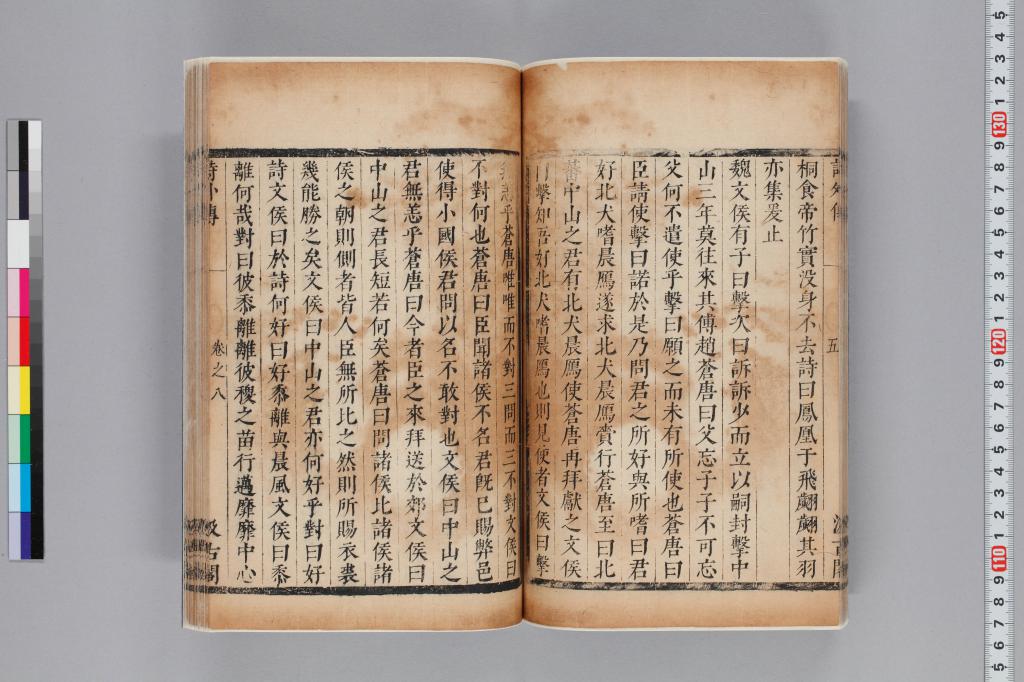 詩外傳
五
汲古閣
桐食帝竹實没身不去詩曰鳳凰于飛翽翽其羽
亦集爰止
魏文侯有子曰擊次曰訴訴少而立以嗣封擊中
山三年莫往來其傅趙蒼唐曰父忘子子不可忘
父何不遣使乎擊曰願之而未有所使也蒼唐曰
臣請使擊曰諾於是乃問君之所好與所嗜曰君
好北犬嗜晨鴈遂求北犬晨鴈賫行蒼唐至曰北
蕃中山之君有北犬晨鴈使蒼唐再拜獻之文侯
曰擊知吾好北犬嗜晨鴈也則見使者文侯曰擊
無恙乎蒼唐唯唯而不對三問而三不對文侯曰
不對何也蒼唐曰臣聞諸侯不名君既已賜弊邑
使得小國侯君問以名不敢對也文侯曰中山之
君無恙乎蒼唐曰今者臣之來拜送於郊文侯曰
中山之君長短若何矣蒼唐曰問諸侯比諸侯諸
侯之朝則側者皆人臣無所比之然則所賜衣裘
幾能勝之矣文侯曰中山之君亦何好乎對曰好
詩文侯曰於詩何好曰好黍離與晨風文侯曰黍
離何哉對曰彼黍離離彼稷之苗行邁靡靡中心
詩外傳
卷之八
汲古閣